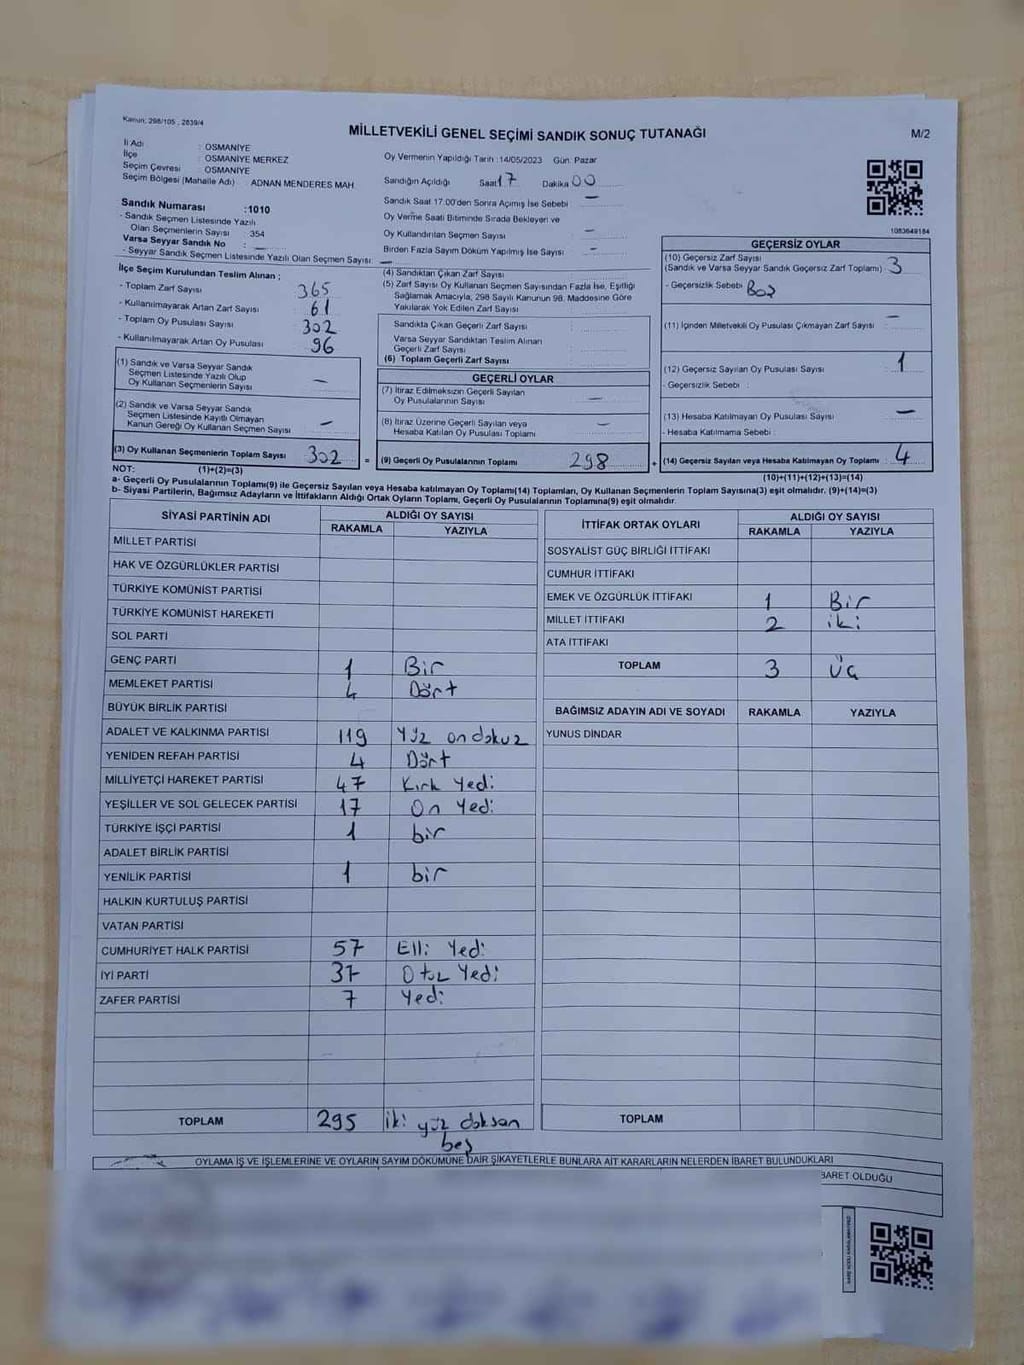 Kanun: 298/105 , 2839/4
MİLLETVEKİLİ GENEL SEÇİMİ SANDIK SONUÇ TUTANAĞI
M/2
İl Adı : OSMANİYE
İlçe : OSMANİYE MERKEZ
Seçim Çevresi : OSMANİYE
Seçim Bölgesi (Mahalle Adı) : ADNAN MENDERES MAH.
Oy Vermenin Yapıldığı Tarih :14/05/2023 Gün: Pazar
Sandığın Açıldığı Saat 17 Dakika 00
Sandık Saat 17:00'den Sonra Açılmış İse Sebebi : —
Oy Verme Saati Bitiminde Sırada Bekleyen ve
Oy Kullandırılan Seçmen Sayısı : —
Birden Fazla Sayım Döküm Yapılmış İse Sayısı : —
1083649184
Sandık Numarası :1010
- Sandık Seçmen Listesinde Yazılı
Olan Seçmenlerin Sayısı : 354
Varsa Seyyar Sandık No : —
- Seyyar Sandık Seçmen Listesinde Yazılı Olan Seçmen Sayısı: —
İlçe Seçim Kurulundan Teslim Alınan ;
- Toplam Zarf Sayısı : 365
- Kullanılmayarak Artan Zarf Sayısı : 61
- Toplam Oy Pusulası Sayısı : 302
- Kullanılmayarak Artan Oy Pusulası : 96
(1) Sandık ve Varsa Seyyar Sandık
Seçmen Listesinde Yazılı Olup
Oy Kullanan Seçmenlerin Sayısı : —
(2) Sandık ve Varsa Seyyar Sandık
Seçmen Listesinde Kayıtlı Olmayan
Kanun Gereği Oy Kullanan Seçmen Sayısı : —
(3) Oy Kullanan Seçmenlerin Toplam Sayısı : 302
(4) Sandıktan Çıkan Zarf Sayısı :
(5) Zarf Sayısı Oy Kullanan Seçmen Sayısından Fazla İse, Eşitliği
Sağlamak Amacıyla; 298 Sayılı Kanunun 98. Maddesine Göre
Yakılarak Yok Edilen Zarf Sayısı :
Sandıkta Çıkan Geçerli Zarf Sayısı :
Varsa Seyyar Sandıktan Teslim Alınan
Geçerli Zarf Sayısı :
(6) Toplam Geçerli Zarf Sayısı :
GEÇERLİ OYLAR
(7) İtiraz Edilmeksizin Geçerli Sayılan
Oy Pusulalarının Sayısı : —
(8) İtiraz Üzerine Geçerli Sayılan veya
Hesaba Katılan Oy Pusulası Toplamı : —
= (9) Geçerli Oy Pusulalarının Toplamı : 298
GEÇERSİZ OYLAR
(10) Geçersiz Zarf Sayısı
(Sandık ve Varsa Seyyar Sandık Geçersiz Zarf Toplamı) : 3
- Geçersizlik Sebebi : Boş
(11) İçinden Milletvekili Oy Pusulası Çıkmayan Zarf Sayısı : —
(12) Geçersiz Sayılan Oy Pusulası Sayısı : 1
- Geçersizlik Sebebi :
(13) Hesaba Katılmayan Oy Pusulası Sayısı : —
- Hesaba Katılmama Sebebi :
+ (14) Geçersiz Sayılan veya Hesaba Katılmayan Oy Toplamı : 4
NOT: (1)+(2)=(3)
(10)+(11)+(12)+(13)=(14)
a- Geçerli Oy Pusulalarının Toplamı(9) ile Geçersiz Sayılan veya Hesaba katılmayan Oy Toplamı(14) Toplamları, Oy Kullanan Seçmenlerin Toplam Sayısına(3) eşit olmalıdır. (9)+(14)=(3)
b- Siyasi Partilerin, Bağımsız Adayların ve İttifakların Aldığı Ortak Oyların Toplamı, Geçerli Oy Pusulalarının Toplamına(9) eşit olmalıdır.
SİYASİ PARTİNİN ADI
ALDIĞI OY SAYISI
RAKAMLA YAZIYLA
MİLLET PARTİSİ
HAK VE ÖZGÜRLÜKLER PARTİSİ
TÜRKİYE KOMÜNİST PARTİSİ
TÜRKİYE KOMÜNİST HAREKETİ
SOL PARTİ
GENÇ PARTİ 1 Bir
MEMLEKET PARTİSİ 4 Dört
BÜYÜK BİRLİK PARTİSİ
ADALET VE KALKINMA PARTİSİ 119 Yüz on dokuz
YENİDEN REFAH PARTİSİ 4 Dört
MİLLİYETÇİ HAREKET PARTİSİ 47 Kırk Yedi
YEŞİLLER VE SOL GELECEK PARTİSİ 17 On Yedi
TÜRKİYE İŞÇİ PARTİSİ 1 bir
ADALET BİRLİK PARTİSİ
YENİLİK PARTİSİ 1 bir
HALKIN KURTULUŞ PARTİSİ
VATAN PARTİSİ
CUMHURİYET HALK PARTİSİ 57 Elli Yedi
İYİ PARTİ 37 Otuz Yedi
ZAFER PARTİSİ 7 Yedi
TOPLAM 295 iki yüz doksan
beş
İTTİFAK ORTAK OYLARI
ALDIĞI OY SAYISI
RAKAMLA YAZIYLA
SOSYALİST GÜÇ BİRLİĞİ İTTİFAKI
CUMHUR İTTİFAKI
EMEK VE ÖZGÜRLÜK İTTİFAKI 1 Bir
MİLLET İTTİFAKI 2 iki
ATA İTTİFAKI
TOPLAM 3 Üç
BAĞIMSIZ ADAYIN ADI VE SOYADI RAKAMLA YAZIYLA
YUNUS DİNDAR
TOPLAM
OYLAMA İŞ VE İŞLEMLERİNE VE OYLARIN SAYIM DÖKÜMÜNE DAİR ŞİKAYETLERLE BUNLARA AİT KARARLARIN NELERDEN İBARET BULUNDUKLARI
BARET OLDUĞU